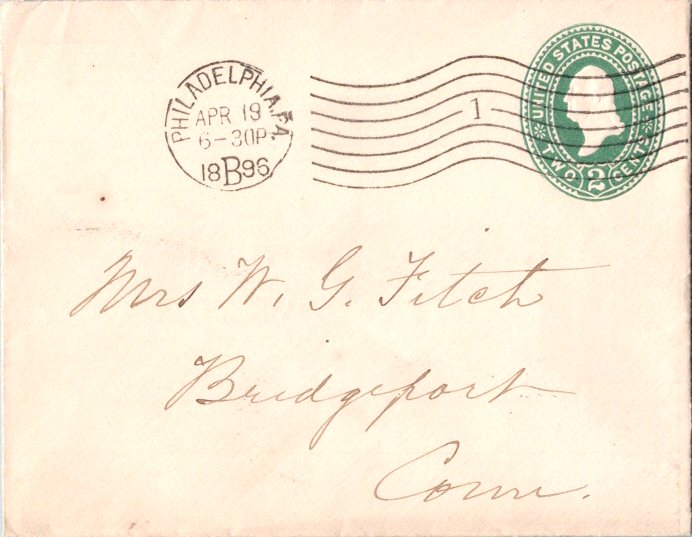 PHILADELPHIA, PA.
APR 19
6-30P
18 B 96
1
UNITED STATES POSTAGE
TWO 2 CENTS
Mrs W. G. Fitch
Bridgeport
Conn.